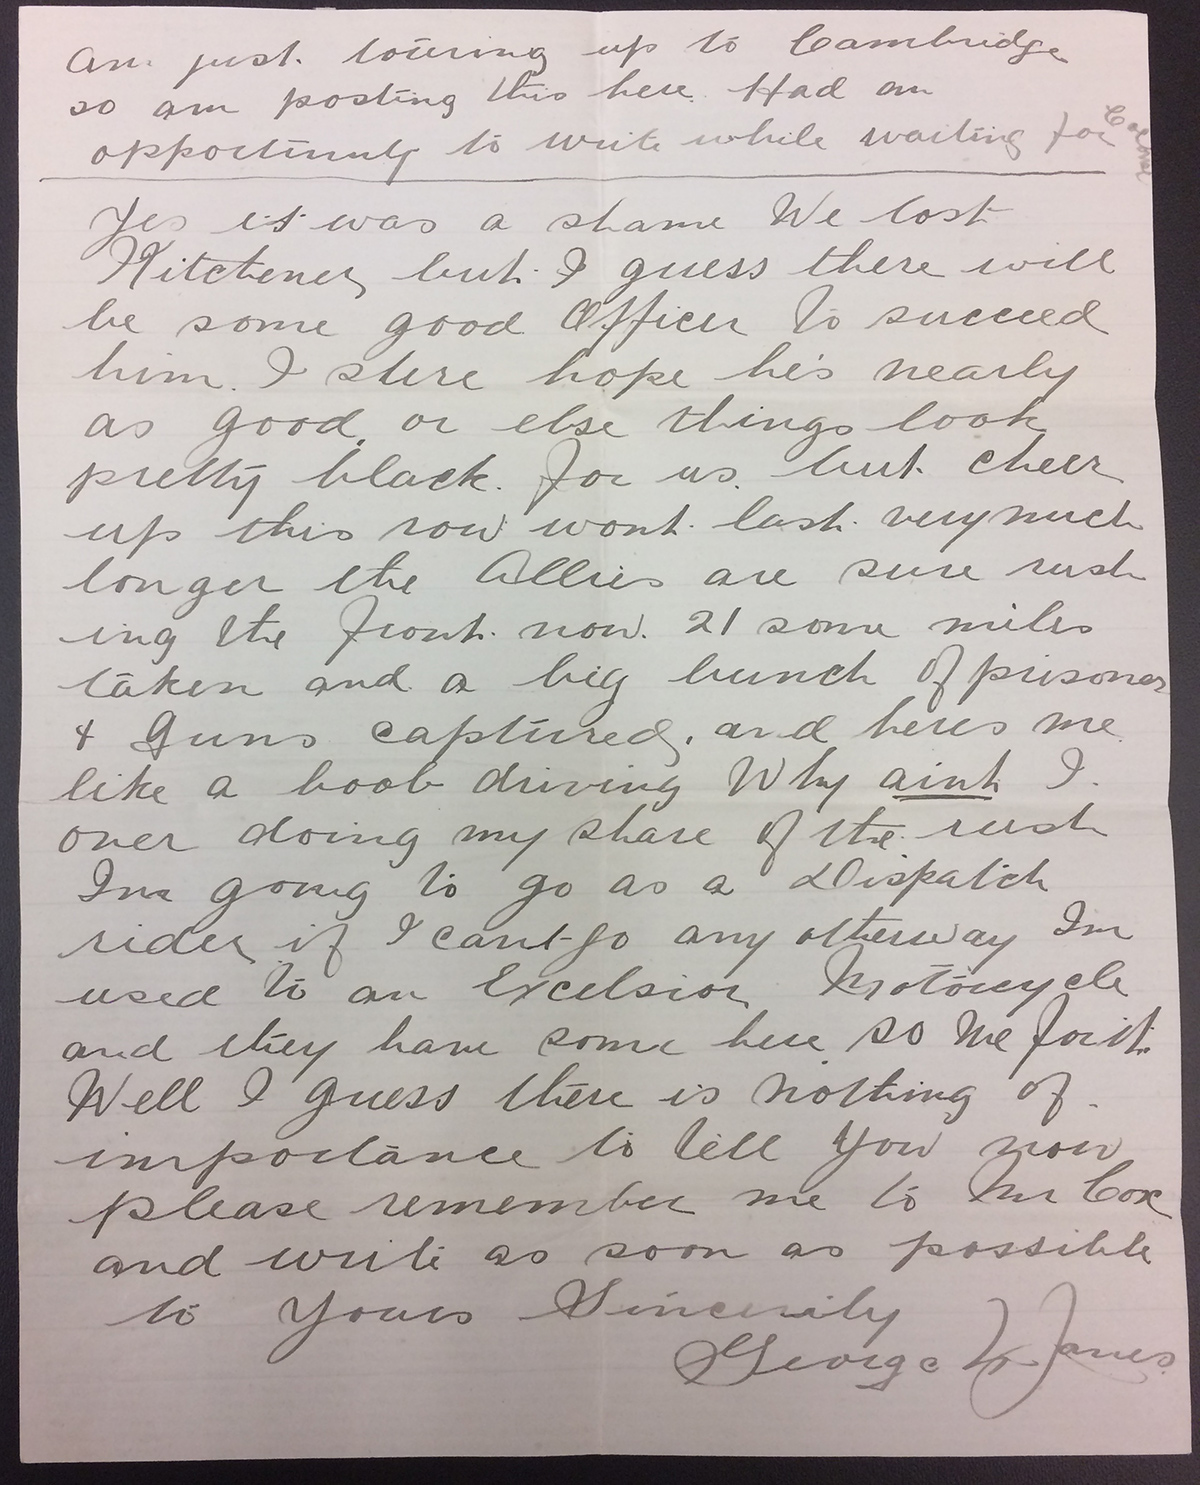 am just touring up to Cambridge
so am posting this here. Had an
opportinuty to write while waiting for Colonel
Yes it was a shame We lost
Kitchener, but I guess there will
be some good Officer to succeed
him. I shure hope he's nearly
as good, or else things look
pretty black. for us. but cheer
up this row wont last very much
longer the Allies are sure rush
ing the front now. 21 some miles
taken and a big bunch of prisoners
& Guns captured, and heres me
like a boob driving Why aint I.
over doing my share of the rush
Im going to go as a Dispatch
rider if I cant go any otherway Im
used to an Excelsior Motorcycle
and they have some here so me for it.
Well I guess there is nothing of
importance to tell You now
please remember me to Mr Cox
and write as soon as possible
to Yours Sincerily
George W. Janes